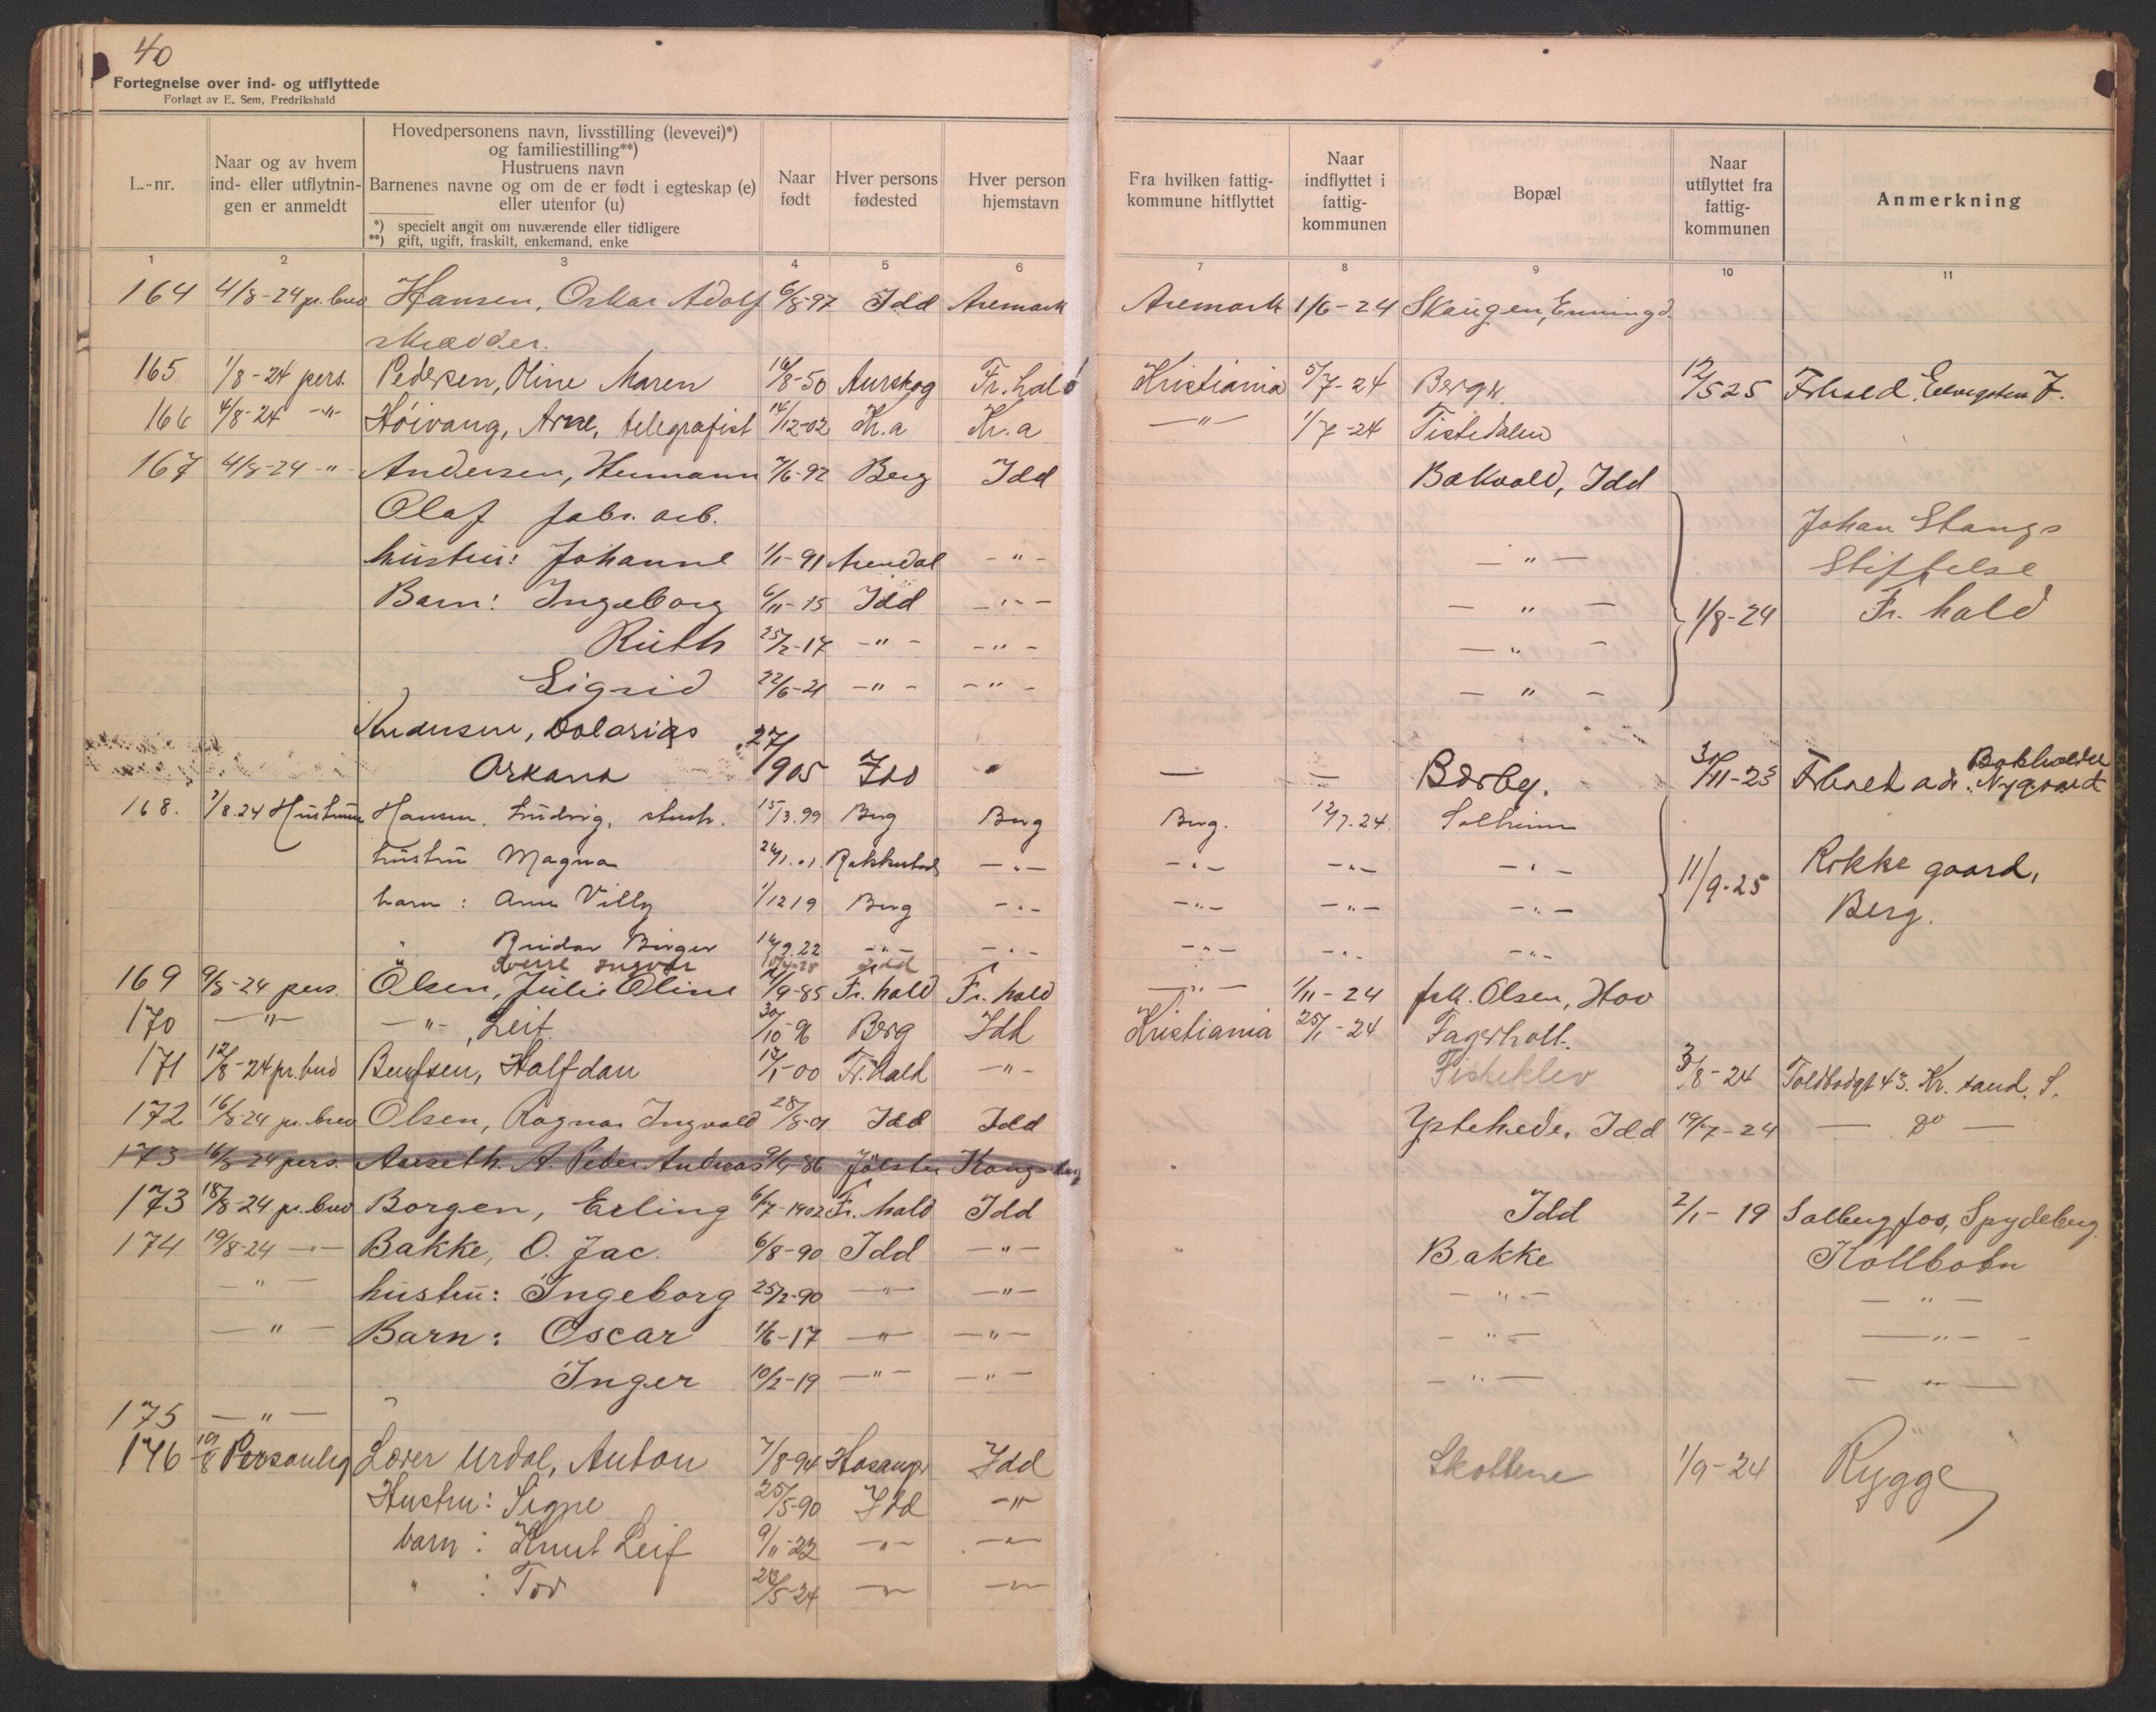 40
Fortegnelse over ind- og utflyttede
Forlagt av E. Sem, Fredrikshald
L.-nr.
Naar og av hvem ind- eller utflytnin- gen er anmeldt
Hovedpersonens navn, livsstilling (levevei)*)
og familiestilling**)
Hustruens navn
Barnenes navne og om de er født i egteskap (e)
eller utenfor (u)
*) specielt angit om nuværende eller tidligere
**) gift, ugift, fraskilt, enkemand, enke
Naar født
Hver persons fødested
Hver person hjemstavn
Fra hvilken fattig- kommune hitflyttet
Naar indflyttet i fattig- kommunen
Bopæl
Naar utflyttet fra fattig- kommunen
Anmerkning
1 2 3 4 5 6 7 8 9 10 11
164 4/8-24 pr. bud Hansen, Oskar Adolf 6/8-97 Idd Aremark Aremark 1/6-24 Skaugen, Enningd.
skrædder.
165 1/8-24 pers. Pedersen, Oline Maren 16/8-50 Aurskog Fr.hald Kristiania 5/7-24 Berg 12/5 25 Frhald
166 4/8-24 -"- Høivang, Arne, telegrafist 14/12-02 Kr.a Kr.a -"- 1/7-24 Tistedalen
167 4/8-24 -"- Andersen, Hermann 7/6-92 Berg Idd Bakvald, Idd
Olaf fabr. arb. Johan Stangs
hustru: Johanne 1/1-91 Arendal -"- -"- Stiftelse
Barn: Ingeborg 6/11-15 Idd -"- -"- 1/8-24 Fr. hald
Ruth 25/2-17 -"- -"- -"-
Sigrid 22/6-21 -"- -"- -"-
Andersen,
27/1 905 Idd — — Børby. 30/11-25 Frhald adr. Bokholder Nygaard
168. 7/8.24 Hustruen Hansen, Ludvig, 15/3.99 Berg Berg Berg. 12/7.24. Solheim
hustru Magna 24/1.01 Rakkestad -"- -"- -"- -"- 11/9-25 Rokke gaard,
barn: Arne Villy 1/12 19 Berg -"- -"- -"- -"- Berg.
" Reidar Birger 14/9.22 -"- -"- -"- -"- -"-
Sverre Ingvar Idd
169 9/8-24 pers. Olsen, Julie Oline /9-85 Fr. hald Fr. hald -"- 1/11-24 Olsen, Hov
170 -"- -"-, Leif 30/10-96 Berg Idd Kristiania 25/1-24 Fagerholt.
171 12/8-24 pr. bud Berntsen, Halfdan 17/1-00 Fr.hald -"- Fiskeklev 3/8-24 Toldbodgt 43. Kr.sand. S.
172 16/8-24 pr. brev Olsen, Ragnar Ingvald 28/8-01 Idd Idd Ystehede, Idd 19/7-24 — do —
173 16/8-24 pers. Aaseth. A. Peder Andreas 9/4-86 Jølster Kongsberg
173 18/8-24 pr. bud Borgen, Erling 6/7-1902 Fr. hald Idd Idd 2/1-19 Solbergfos, Spydeberg.
174 19/8-24 -"- Bakke, O. Jac. 6/8-90 Idd -"- Bakke Kolbotn
-"- hustru: Ingeborg 25/2-90 -"- -"- -"- -"-
-"- Barn: Oscar 1/6-17 -"- -"- -"- -"-
Inger 10/2-19 -"- -"- -"- -"-
175 -"-
176 19/8 Personlig Urdal, Anton 7/8-94 Idd Skottene 1/9-24 Rygge
Hustru: Signe 25/5-90 Idd -"-
barn: Knut Leif 9/11-22 -"- -"-
" : Tor 23/5-24 -"- -"-